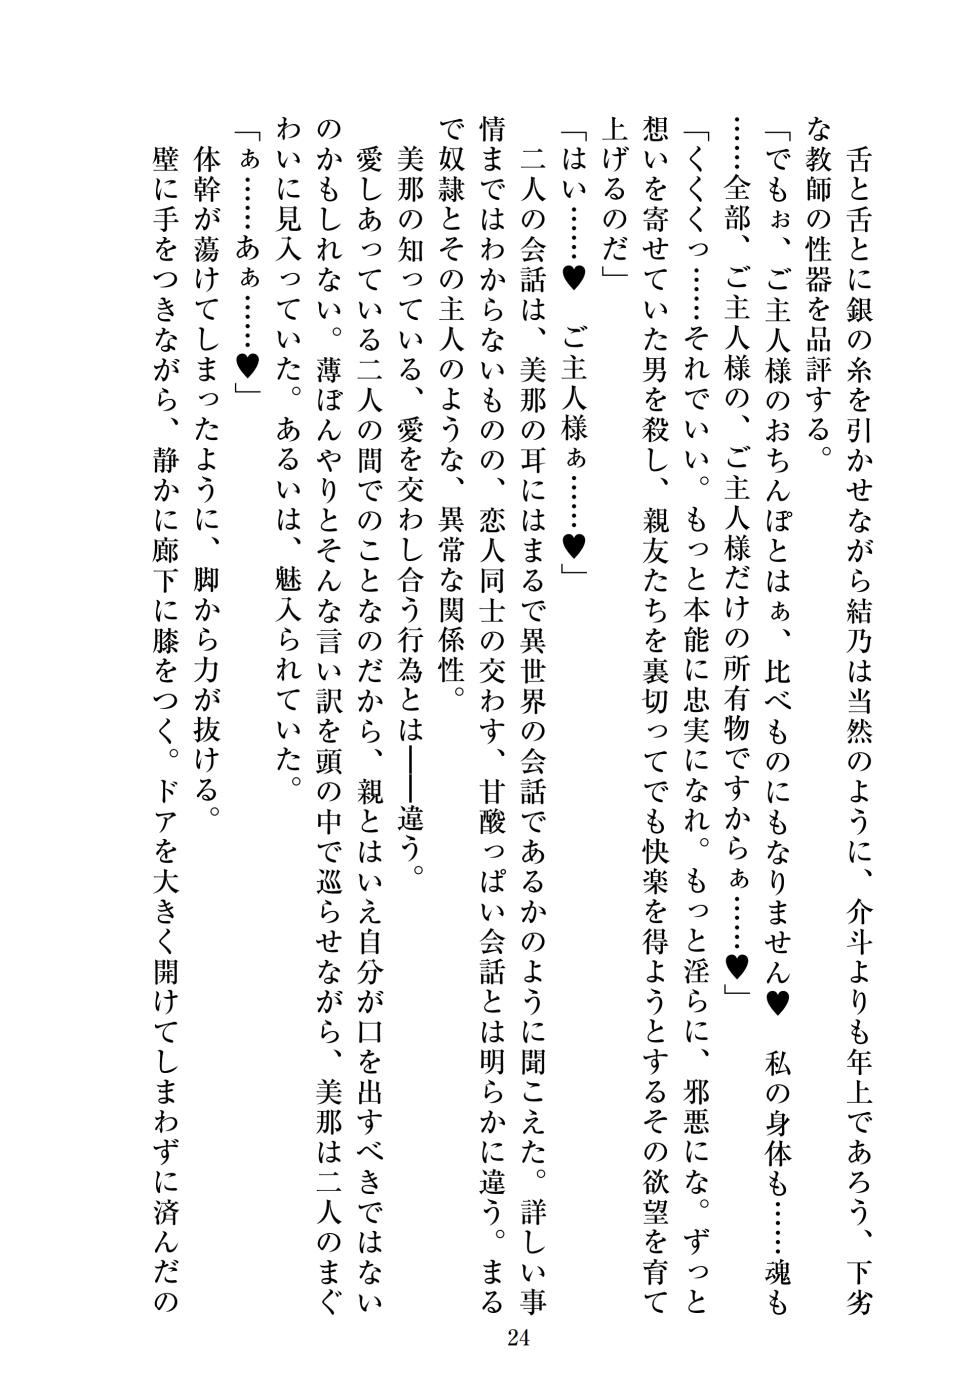 舌と舌とに銀の糸を引かせながら結乃は当然のように、介斗よりも年上であろう、下劣
な教師の性器を品評する。
「でもぉ、ご主人様のおちんぽとはぁ、比べものにもなりません♥　私の身体も……魂も
……全部、ご主人様の、ご主人様だけの所有物ですからぁ……♥」
「くくくっ……それでいい。もっと本能に忠実になれ。もっと淫らに、邪悪にな。ずっと
想いを寄せていた男を殺し、親友たちを裏切ってでも快楽を得ようとするその欲望を育て
上げるのだ」
「はい……♥　ご主人様ぁ……♥」
二人の会話は、美那の耳にはまるで異世界の会話であるかのように聞こえた。詳しい事
情まではわからないものの、恋人同士の交わす、甘酸っぱい会話とは明らかに違う。まる
で奴隷とその主人のような、異常な関係性。
美那の知っている、愛を交わし合う行為とは――違う。
愛しあっている二人の間でのことなのだから、親とはいえ自分が口を出すべきではない
のかもしれない。薄ぼんやりとそんな言い訳を頭の中で巡らせながら、美那は二人のまぐ
わいに見入っていた。あるいは、魅入られていた。
「ぁ……あぁ……♥」
体幹が蕩けてしまったように、脚から力が抜ける。
壁に手をつきながら、静かに廊下に膝をつく。ドアを大きく開けてしまわずに済んだの
24